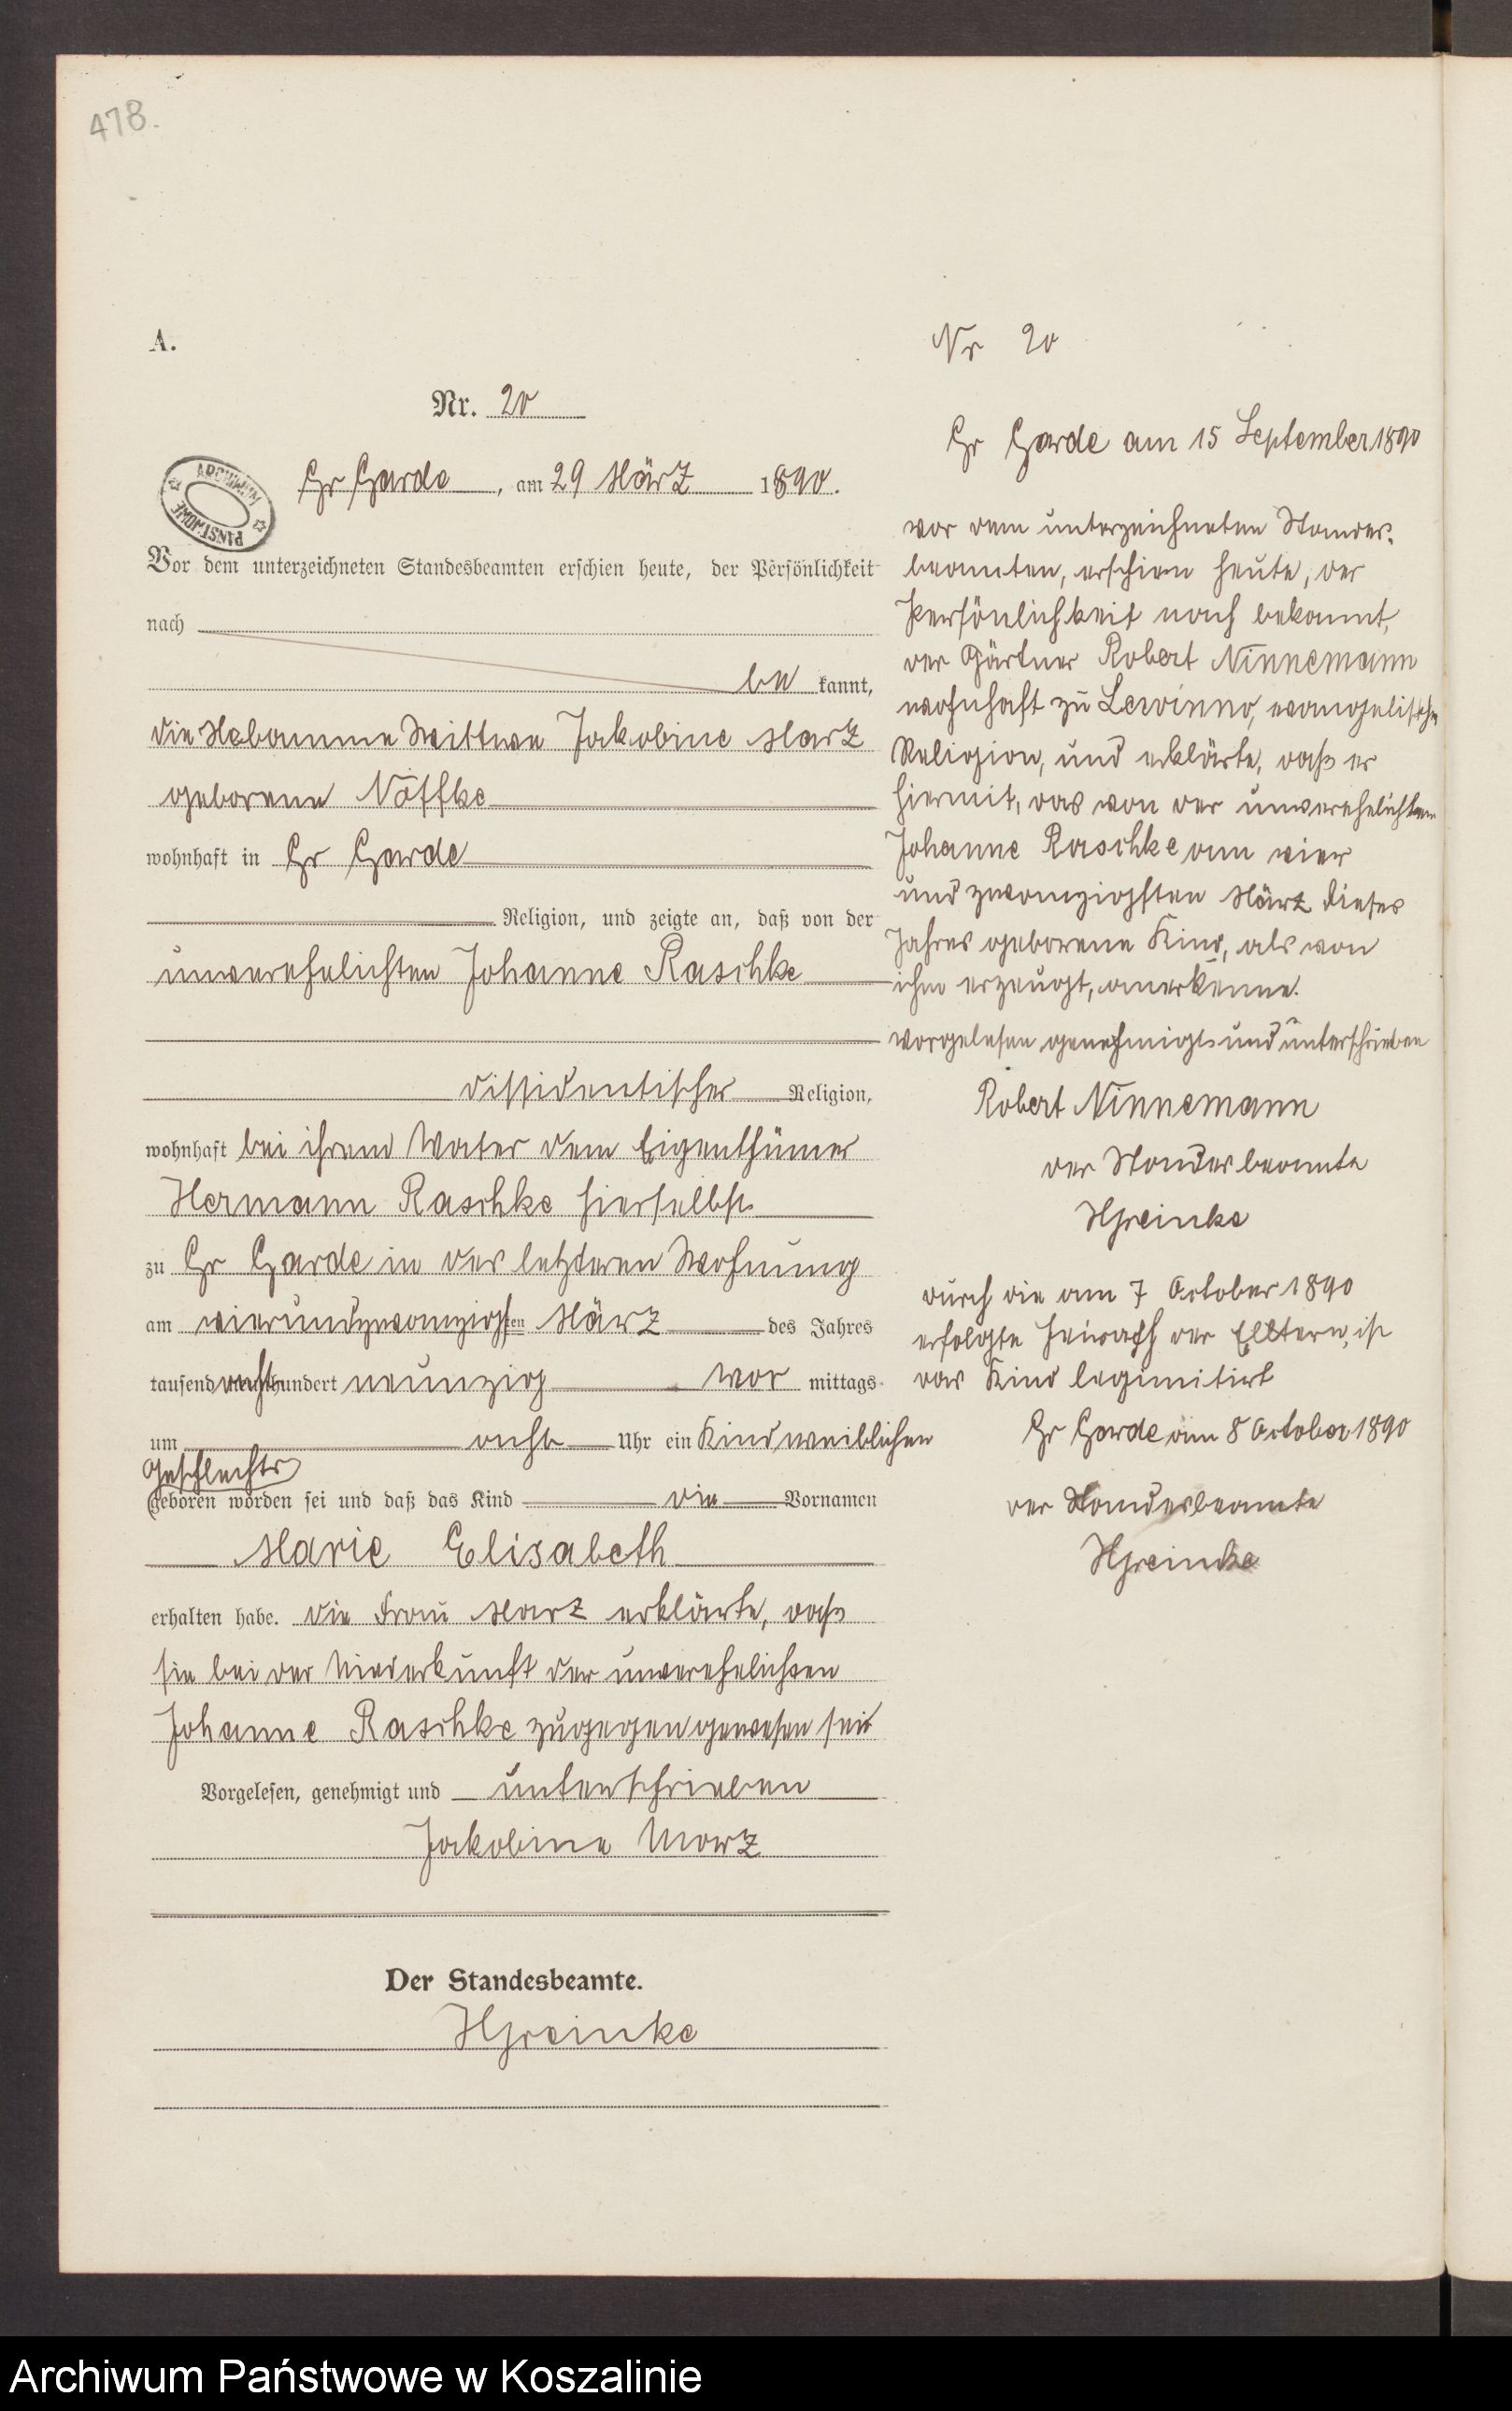 478.
A.
Nr. 20
ARCHIWUM PAŃSTWOWE
Gr Garde, am 29 März 1890.
Vor dem unterzeichneten Standesbeamten erschien heute, der Persönlichkeit
nach
be kannt,
die Hebamme Wittwe Jakobine Marz
geborene Nöffke
wohnhaft in Gr Garde
Religion, und zeigte an, daß von der
unverehelichten Johanne Raschke
dissidentischer Religion,
wohnhaft bei ihrem Vater dem Eigenthümer
Hermann Raschke hierselbst
zu Gr Garde in der letzteren Wohnung
am vierundzwanzigsten März des Jahres
tausend achthundert neunzig vor mittags
um acht Uhr ein Kind weiblichen
Geschlechts
geboren worden sei und daß das Kind die Vornamen
Marie Elisabeth
erhalten habe. Die Frau Marz erklärte, daß
sie bei der Niederkunft der unverehelichten
Johanne Raschke zugegen gewesen sei
Vorgelesen, genehmigt und unterschrieben
Jakobine Marz
Der Standesbeamte.
HGreinke
Nr 20
Gr Garde am 15 September 1890
vor dem unterzeichneten Standes-
beamten, erschien heute, der
Persönlichkeit nach bekannt,
der Gärtner Robert Ninnemann
wohnhaft zu Lewinno, evangelischer
Religion, und erklärte, daß er
hiermit, das von der unverehelichten
Johanne Raschke am vier
und zwanzigsten März dieses
Jahres geborene Kind, als von
ihm erzeugt, anerkenne.
vorgelesen genehmigt und unterschrieben
Robert Ninnemann
der Standesbeamte
HGreinke
durch die am 7 October 1890
erfolgte Heirath der Elltern, ist
das Kind legimitirt
Gr Garde am 8 October 1890
der Standesbeamte
HGreinke
Archiwum Państwowe w Koszalinie